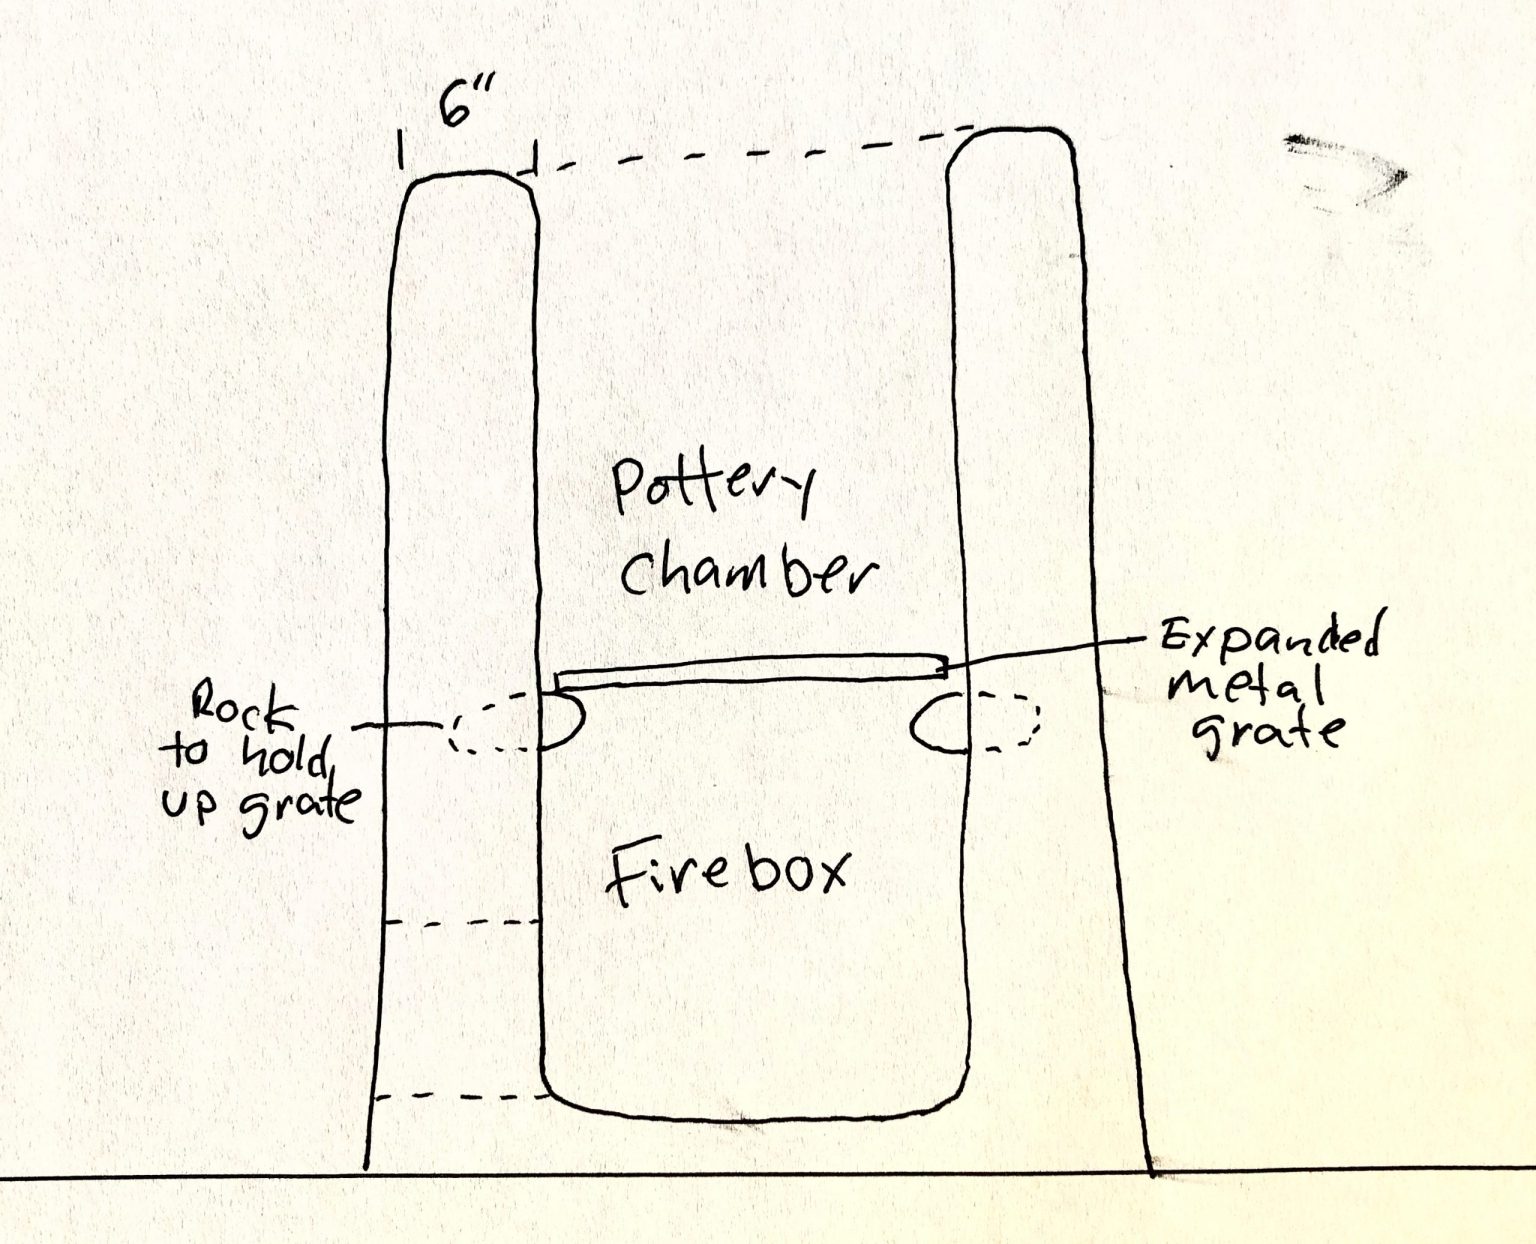 6"
Pottery
Chamber
Expanded
metal
grate
Rock
to hold
up grate
Firebox